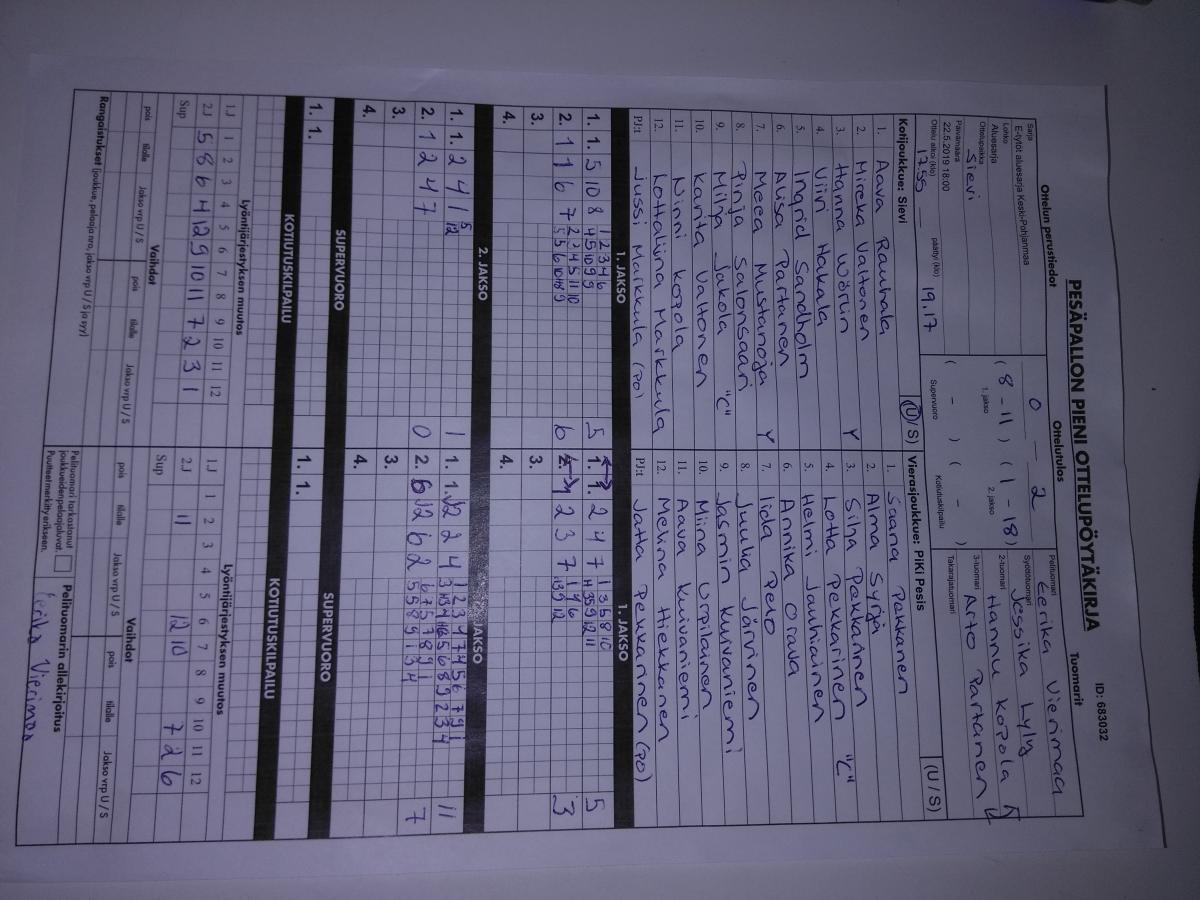 PESÄPALLON PIENI OTTELUPÖYTÄKIRJA
ID: 683032
Ottelun perustiedot
Sarja
E-tytöt aluesarja Keski-Pohjanmaa
Lohko
Aluesarja
Ottelupaikka
Sievi
Päivämäärä
22.5.2019 18:00
Ottelu alkoi (klo)
17.55
päättyi (klo)
19.17
Ottelutulos
0 — 2
(8 - 11) (1 - 18)
1. jakso
2. jakso
( - ) ( - )
Supervuoro
Kotiutuskilpailu
Tuomarit
Pelituomari
Eerika Vierimaa
Syöttötuomari
Jessika Lyly
2-tuomari
Hannu Kopola
3-tuomari
Arto Partanen
Takarajatuomari
Kotijoukkue: Sievi
(U / S)
1. Aava Rauhala
2. Mireka Valtonen
3. Hanna Wörlin Y
4. Viivi Hakala
5. Ingrid Sandholm
6. Aliisa Partanen
7. Meea Mustanoja Y
8. Pinja Salonsaari
9. Milja Jakola "C"
10. Karita Valtonen
11. Ninni Kopola
12. Lottaliina Markkula
PJ:t Jussi Markkula (PO)
Vierasjoukkue: PiKi Pesis
(U / S)
1. Saana Pakkanen
2. Alma Syrjä
3. Silja Pekkarinen
4. Lotta Pekkarinen "C"
5. Helmi Jauhiainen
6. Annika Orava
7. Iida Pelto
8. Juulia Järvinen
9. Jasmin Kuivaniemi
10. Miina Urpilainen
11. Aava Kuivaniemi
12. Melina Hiekkanen
PJ:t Jatta Pekkarinen (PO)
1. JAKSO
1. JAKSO
1. 1. 5 10 8
5
2. 1 1 6 7
6
3.
4.
1. 1. 2 4 7
5
2. 1 2 3 7
3
3.
4.
2. JAKSO
JAKSO
1. 1. 2 4 1
1
2. 1 2 4 7
0
3.
4.
1. 1. 12 2 4
11
2. 6 12 6 2
7
3.
4.
SUPERVUORO
SUPERVUORO
1. 1.
1. 1.
KOTIUTUSKILPAILU
KOTIUTUSKILPAILU
Lyöntijärjestyksen muutos
1.J 1 2 3 4 5 6 7 8 9 10 11 12
2.J 5 8 6 4 12 9 10 11 7 2 3 1
Sup
Lyöntijärjestyksen muutos
1.J 1 2 3 4 5 6 7 8 9 10 11 12
2.J 11 12 10 7 2 6
Sup
Vaihdot
pois tilalle Jakso vrp U / S pois tilalle Jakso vrp U / S
Vaihdot
pois tilalle Jakso vrp U / S pois tilalle Jakso vrp U / S
Rangaistukset (joukkue, pelaaja nro, jakso vrp U / S ja syy)
Pelituomari tarkastanut
joukkueidenpelaajaluvat.
Puutteet merkitty erikseen.
Pelituomarin allekirjoitus
Eerika Vierimaa